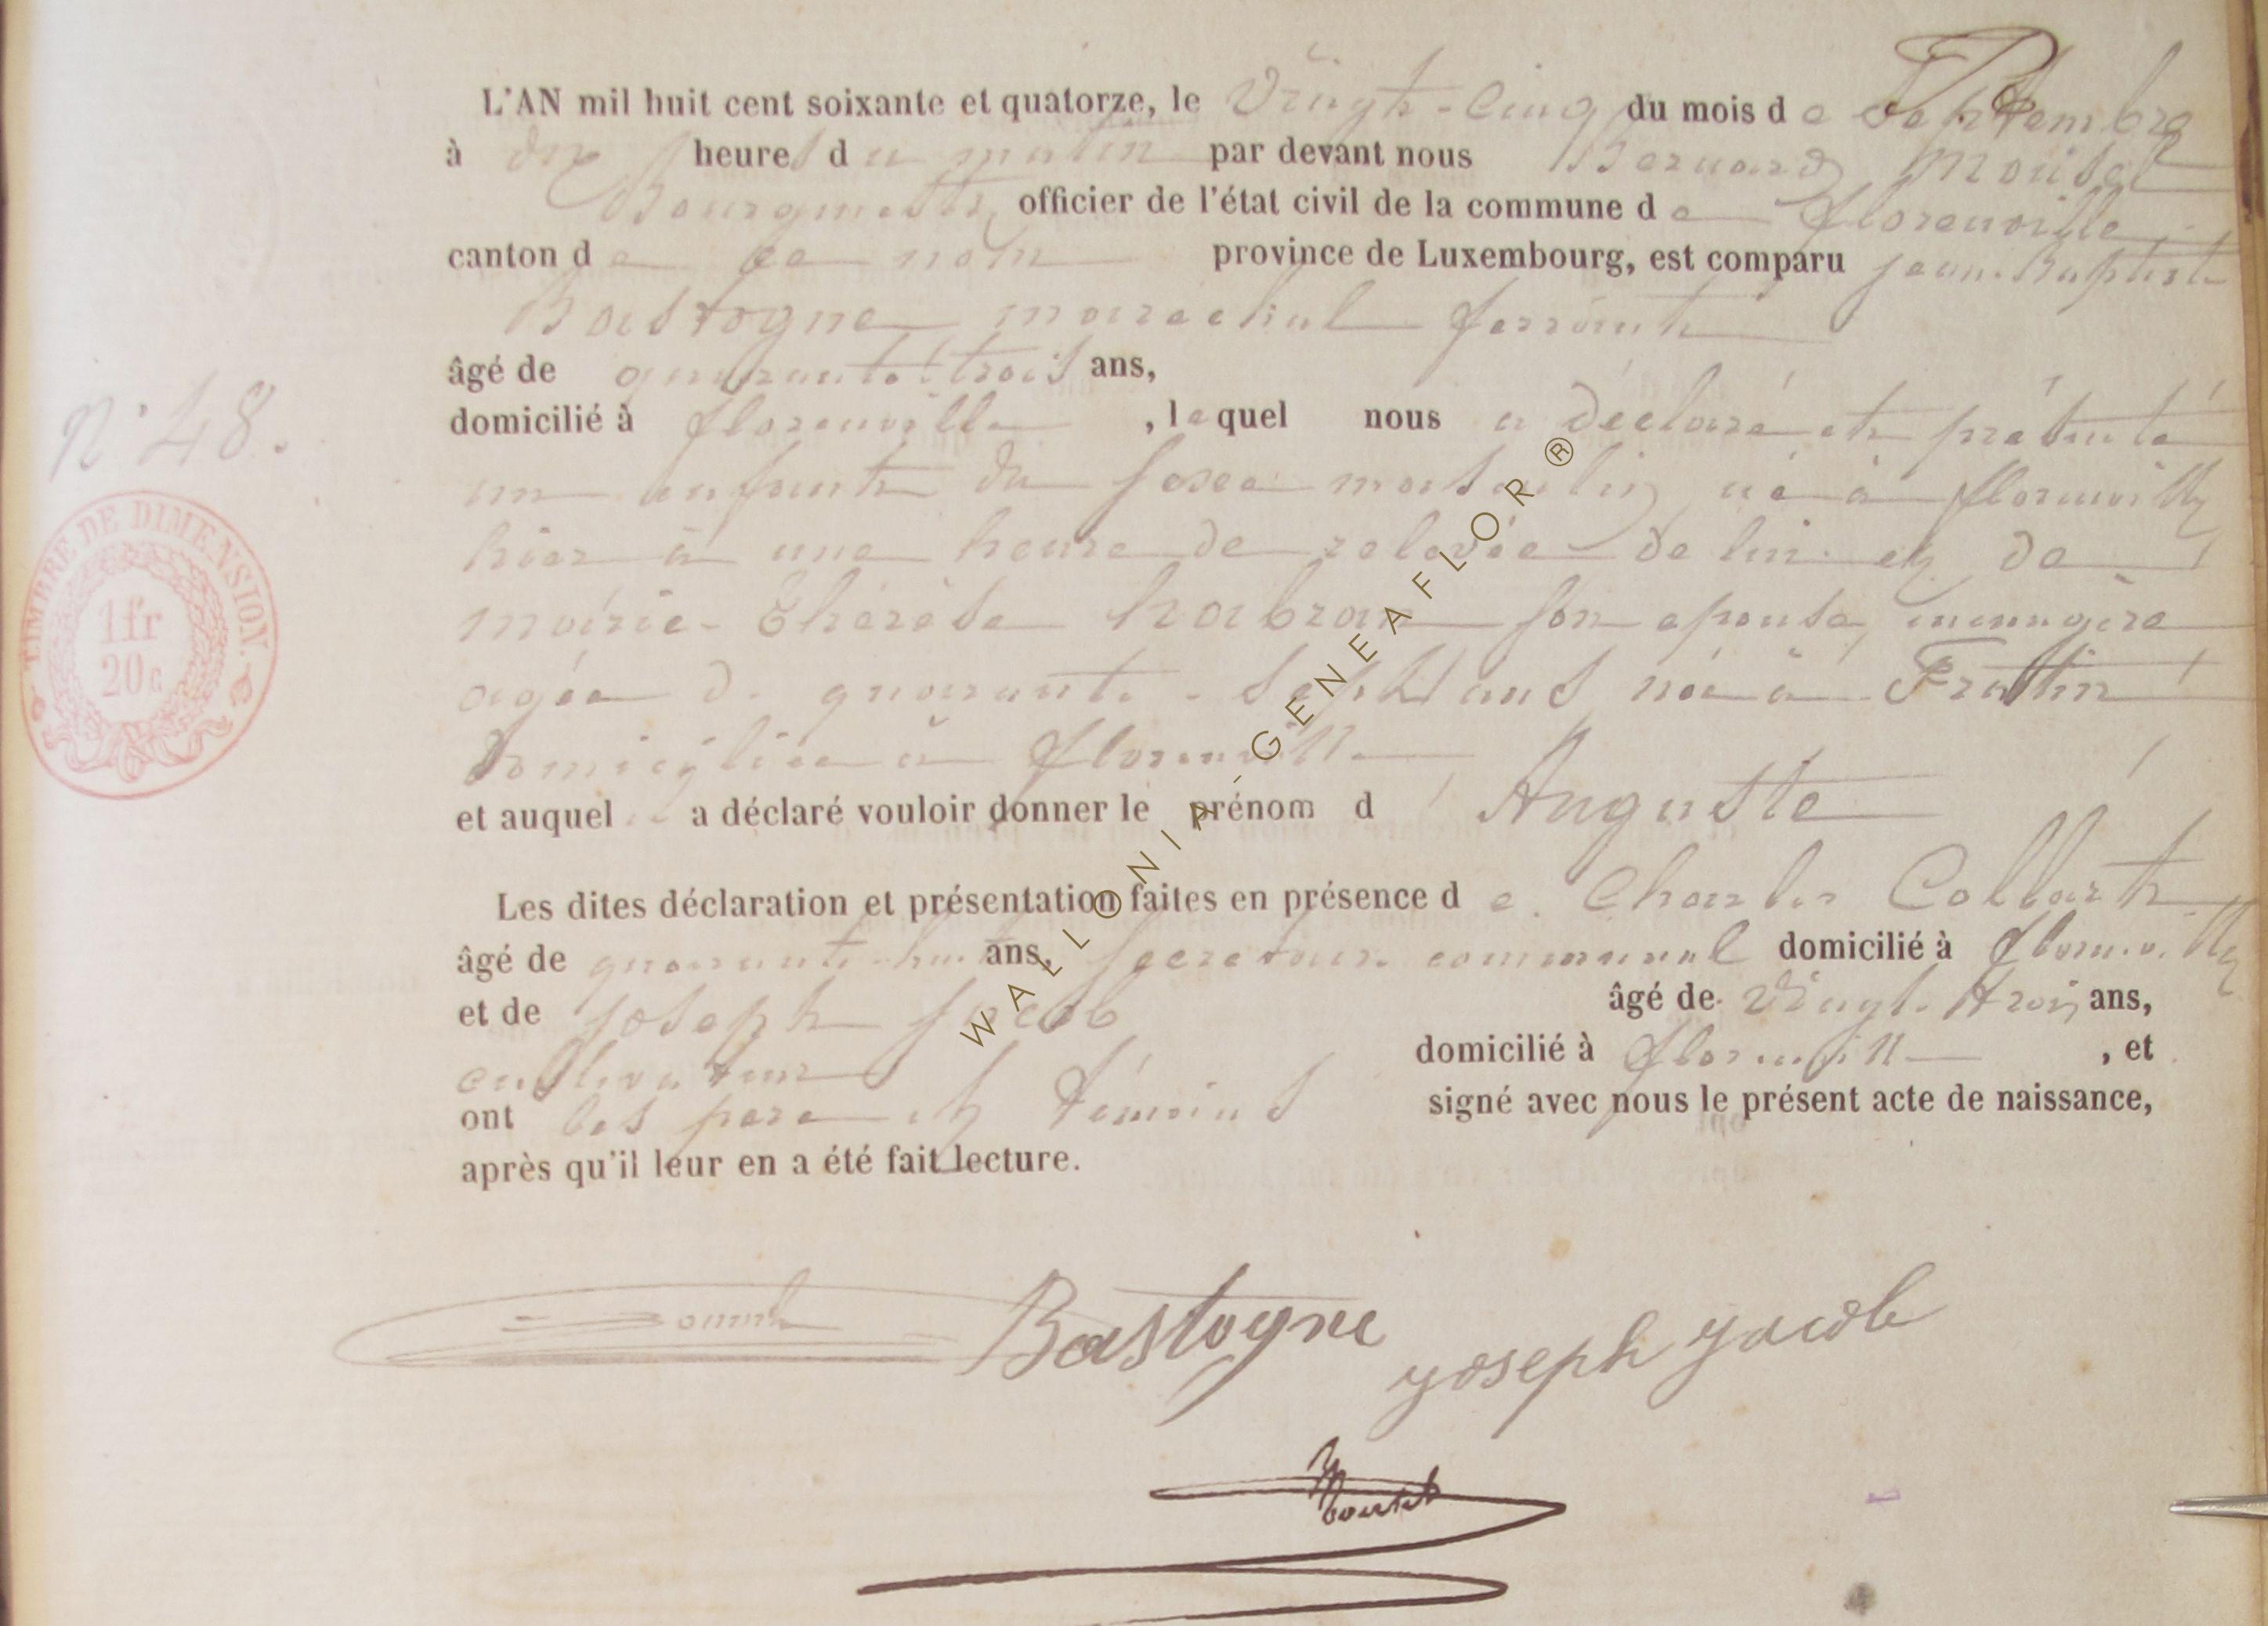 L'AN mil huit cent soixante et quatorze, le Vingt-Cinq du mois de Septembre
à dix heures du matin par devant nous Bernard Moutet
Bourgmestre officier de l'état civil de la commune de florenville
canton de ce nom province de Luxembourg, est comparu jean-Baptiste
Bastogne marechal ferrant
âgé de quarante trois ans,
domicilié à florenville, lequel nous a déclaré et présenté
un enfant du sexe masculin né à florenville
hier à une heure de relevée de lui et de
marie-Thérèse habran son epouse, menagère
agée de quarante-sept ans née à Frattin
domiciliée à florenville
et auquel il a déclaré vouloir donner le prénom d'Auguste
Les dites déclaration et présentation faites en présence de Charles Collart
âgé de quarante-huit ans, secretaire communal domicilié à florenville
et de joseph jacob âgé de Vingt-trois ans,
cultivateur domicilié à florenville, et
ont les pere et témoins signé avec nous le présent acte de naissance,
après qu'il leur en a été fait lecture.
N° 48.
TIMBRE DE DIMENSION.
1fr
20c
Bastogne
joseph jacob
Moutet
WALLONIA-GENEAFLOR®